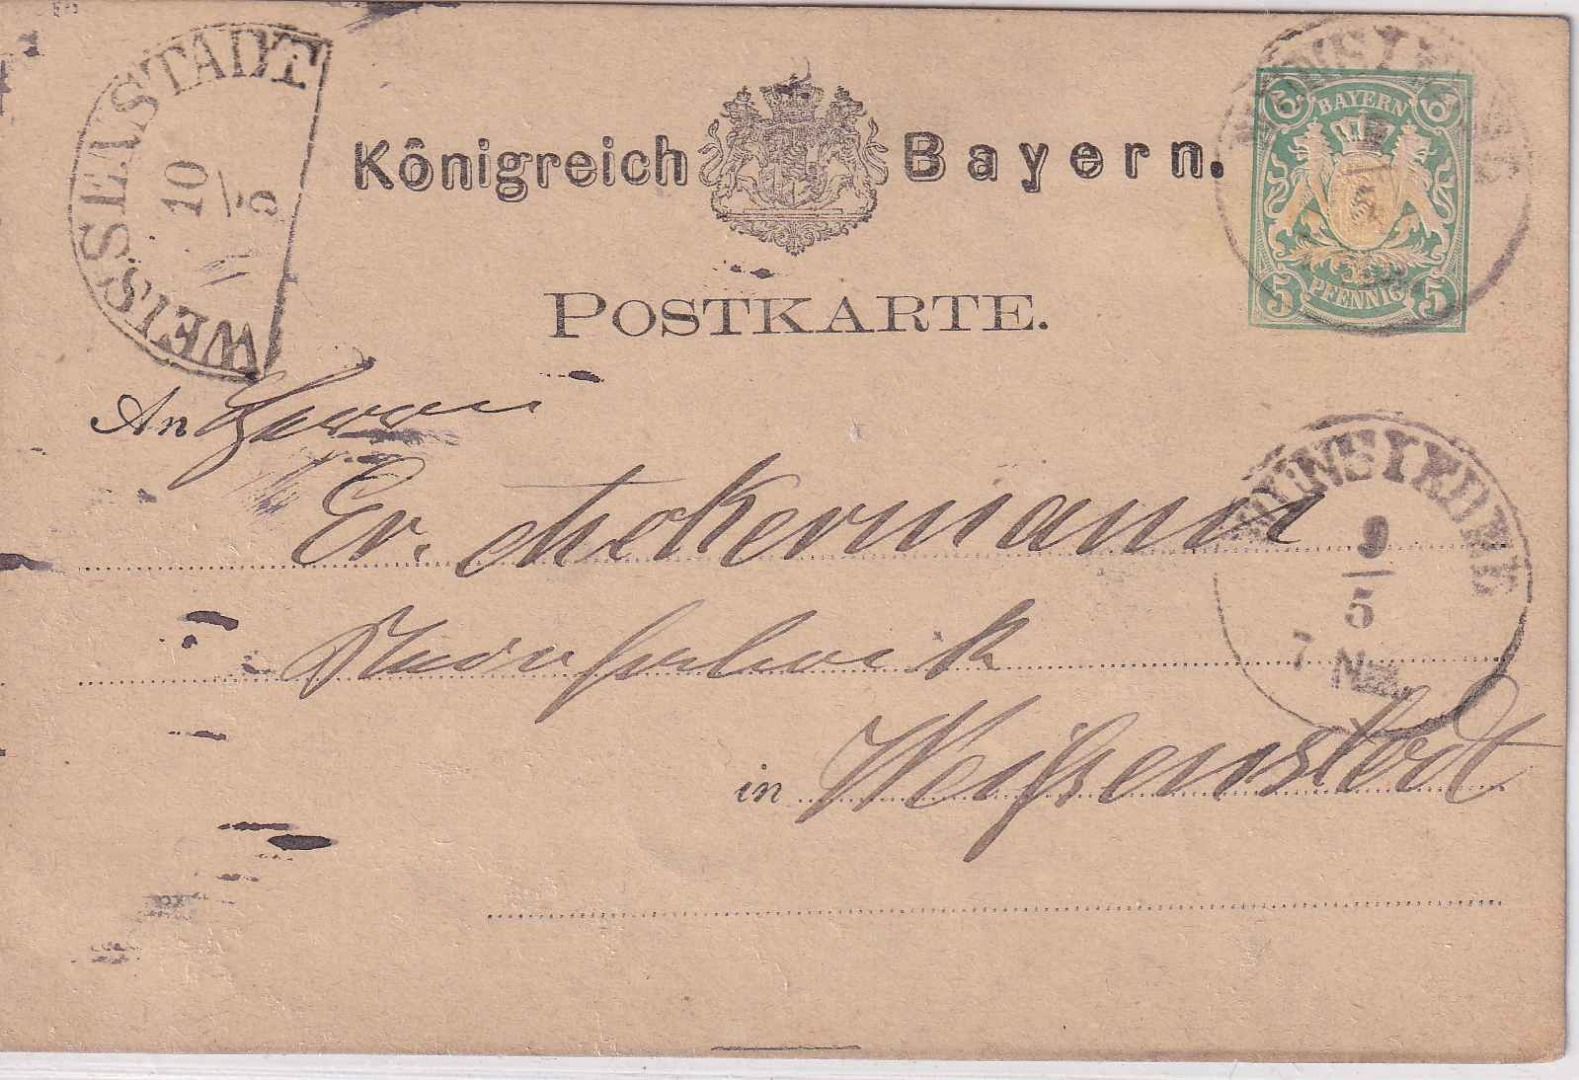 WEISSENSTADT
10
5
Königreich Bayern.
5 BAYERN 5
5 PFENNIG 5
POSTKARTE.
An Herrn
Er. Ackermann
in Weißenstadt
WUNSIEDEL
9
5
7 N